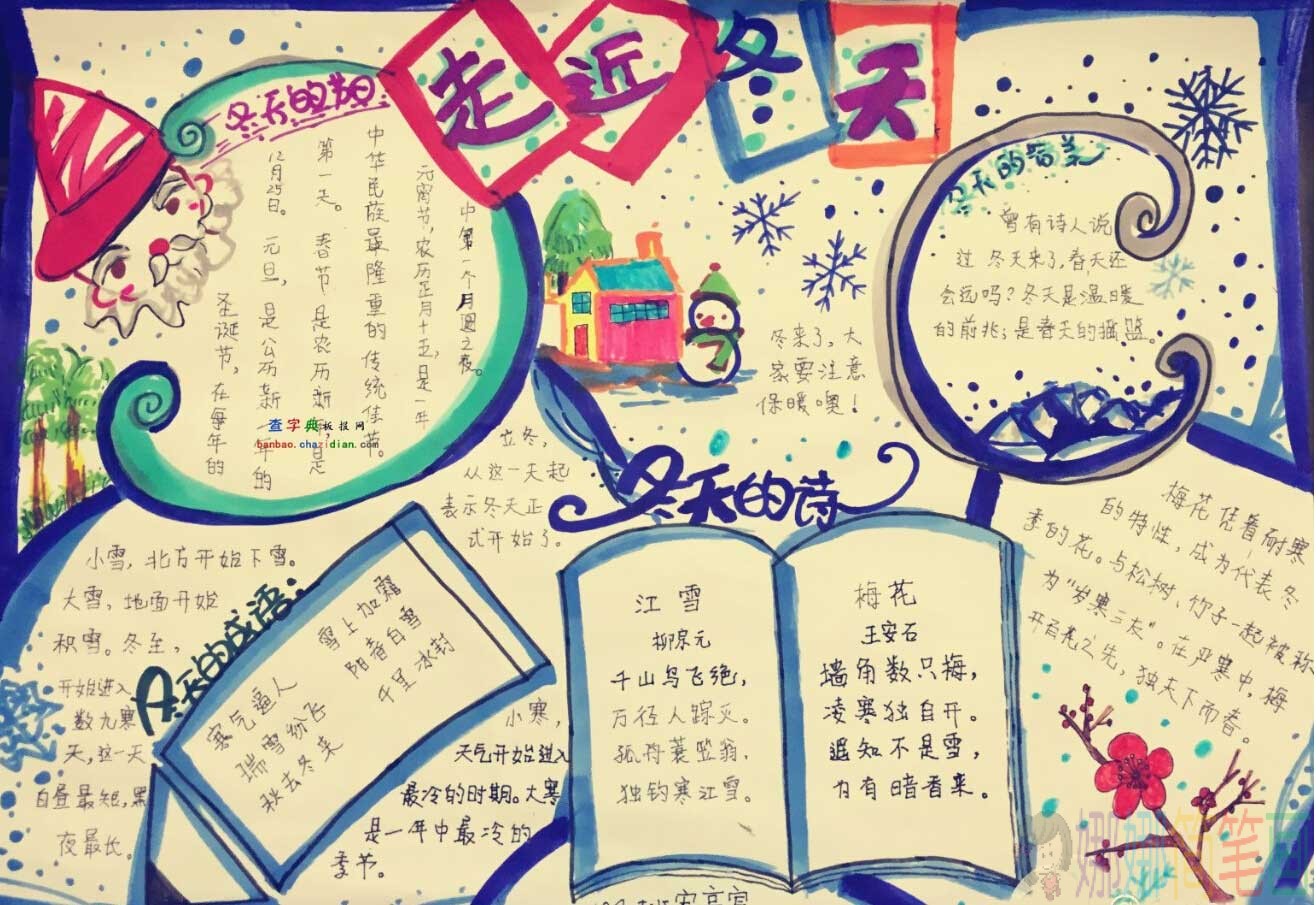 走近冬天
冬天的节日
圣诞节,在每年的
12月25日。元旦,是公历新一年的
第一天。春节是农历新年,是
中华民族最隆重的传统佳节。
元宵节,农历正月十五,是一年
中第一个月圆之夜。
查字典板报网
banbao.chazidian.com
冬天的
曾有诗人说
过 冬天来了,春天还
会远吗?冬天是温暖
的前兆;是春天的摇篮。
冬来了,大
家要注意
保暖噢!
立冬,
从这一天起
表示冬天正
式开始了。
小雪,北方开始下雪。
大雪,地面开始
积雪。冬至,
开始进入
数九寒
天,这一天
白昼最短,黑
夜最长。
冬天的成语:
雪上加霜
阳春白雪
千里冰封
寒气逼人
瑞雪纷飞
秋去冬来
小寒,
天气开始进入
最冷的时期。大寒
是一年中最冷的
季节。
冬天的诗
江雪
柳宗元
千山鸟飞绝,
万径人踪灭。
孤舟蓑笠翁,
独钓寒江雪。
梅花
王安石
墙角数只梅,
凌寒独自开。
遥知不是雪,
为有暗香来。
梅花凭着耐寒
的特性,成为代表冬
季的花。与松树、竹子一起被称
为"岁寒三友"。在严寒中,梅
开百花之先,独天下而春。
娜娜简笔画